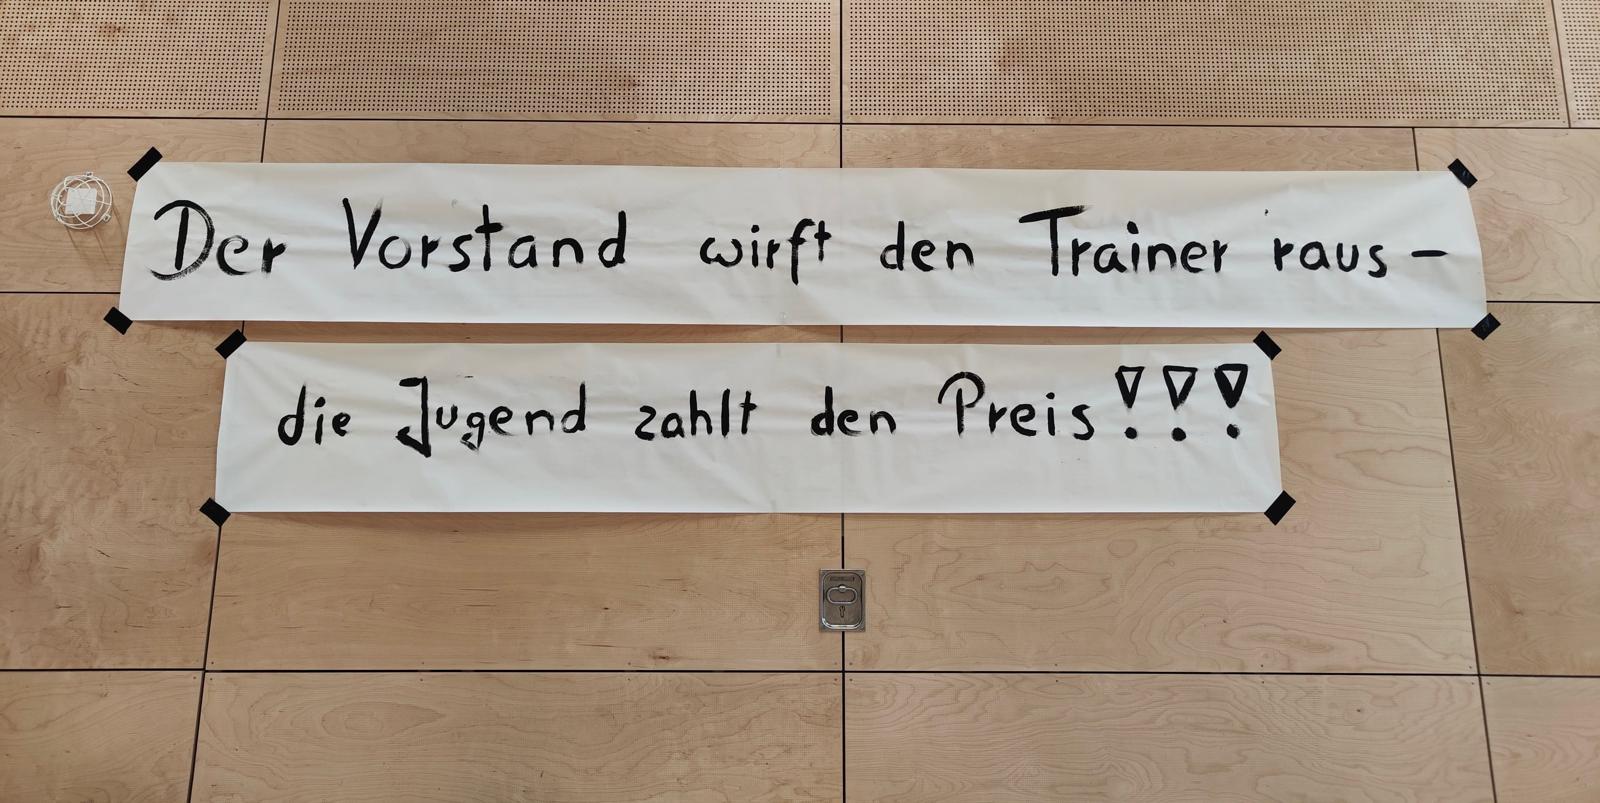 Der Vorstand wirft den Trainer raus –
die Jugend zahlt den Preis!!!